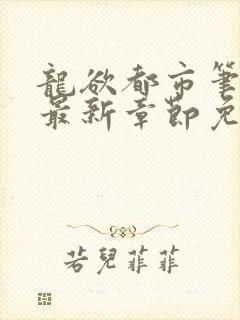 龍欲都市筆
最新章節免
若兒菲菲